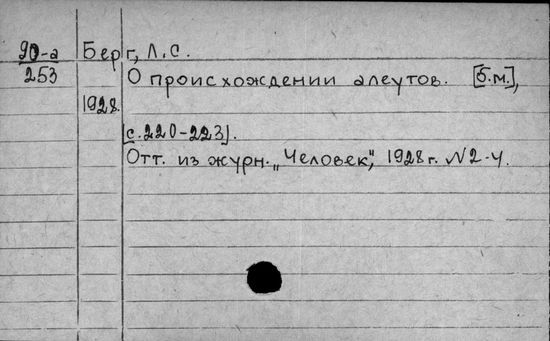 90-а Берг, Л.С.
253 О происхождении алеутов. [Б.м.],
1928.
[с.220-223].
Отт. из журн. „Человек", 1928 г. №2-4.